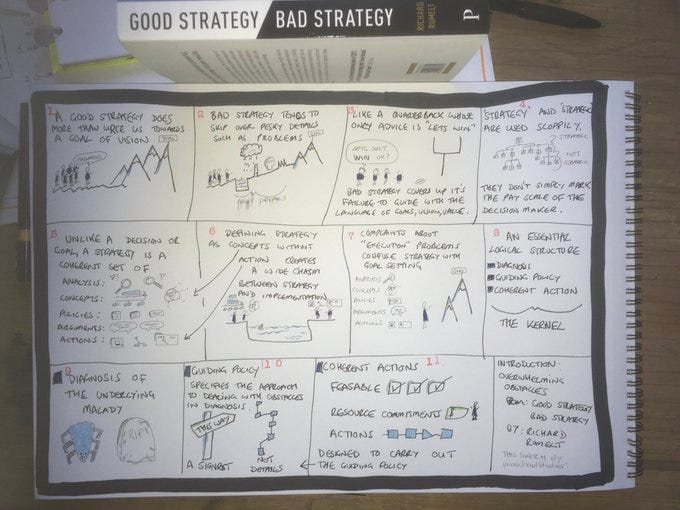 GOOD STRATEGY BAD STRATEGY
RICHARD RUMELT
P
1
A GOOD STRATEGY DOES
MORE THAN URGE US TOWARDS
A GOAL OF VISION
GOAL
ONWARDS
2
BAD STRATEGY TENDS TO
SKIP OVER PESKY DETAILS
SUCH AS PROBLEMS
GOAL
3
LIKE A QUARTERBACK WHOSE
ONLY ADVICE IS "LETS WIN"
WIN OK?
BAD STRATEGY COVERS UP IT'S
FAILURE TO GUIDE WITH THE
LANGUAGE OF GOALS, VISION, VALUE.
4
'STRATEGY' AND 'STRATEGIC'
ARE USED SLOPPILY.
STRATEGIC
NOT
STRATEGIC
THEY DON'T SIMPLY MARK
THE PAY SCALE OF THE
DECISION MAKER.
5
UNLIKE A DECISION OR
GOAL, A STRATEGY IS A
COHERENT SET OF
ANALYSIS:
CONCEPTS:
POLICIES:
ARGUMENTS:
ACTIONS:
6
DEFINING STRATEGY
AS CONCEPTS WITHOUT
ACTION CREATES
A WIDE CHASM
BETWEEN STRATEGY
AND IMPLEMENTATION
7
COMPLAINTS ABOUT
"EXECUTION" PROBLEMS
CONFUSE STRATEGY WITH
GOAL SETTING
ANALYSIS
CONCEPTS
POLICIES
ARGUMENTS
ACTIONS
GOAL
8
AN ESSENTIAL
LOGICAL STRUCTURE
DIAGNOSIS
GUIDING POLICY
COHERENT ACTION
THE KERNEL
9
DIAGNOSIS OF
THE UNDERLYING
MALADY
RIP!
10
GUIDING POLICY
SPECIFIES THE APPROACH
TO DEALING WITH OBSTACLES
IN DIAGNOSIS.
THIS WAY
A SIGNPOST
NOT
DETAILS
11
COHERENT ACTIONS
FEASABLE
RESOURCE COMMITMENTS
ACTIONS
DESIGNED TO CARRY OUT
THE GUIDING POLICY
INTRODUCTION:
OVERWHELMING
OBSTACLES
FROM: GOOD STRATEGY
BAD STRATEGY
BY: RICHARD
RUMELT